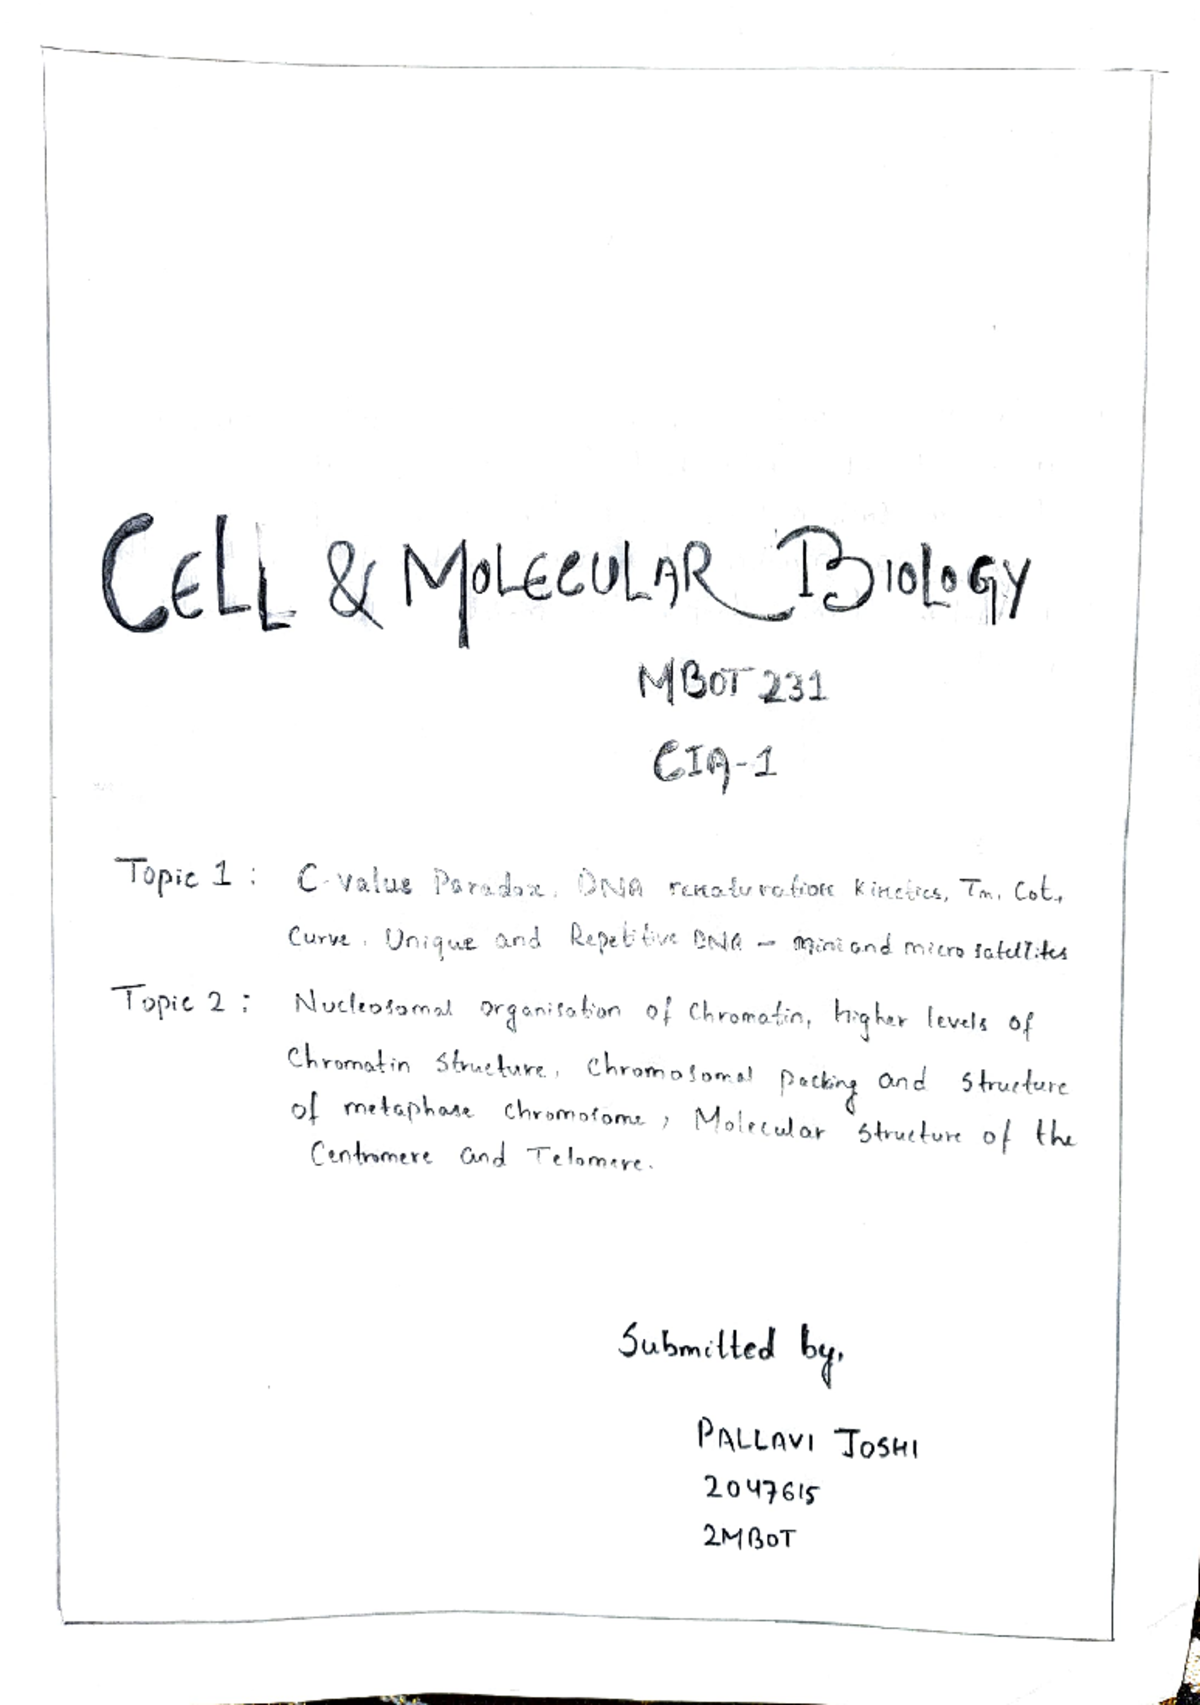 CELL & MOLECULAR BIOLOGY
MBOT 231
CIA-1
Topic 1 : C-value Paradox, DNA renaturation kinetics, Tm, Cot,
Curve, Unique and Repetitive DNA - mini and micro satellites
Topic 2 : Nucleosomal organisation of Chromatin, higher levels of
Chromatin structure, Chromosomal packing and structure
of metaphase chromosome, Molecular structure of the
Centromere and Telomere.
Submitted by,
PALLAVI JOSHI
2047615
2MBOT